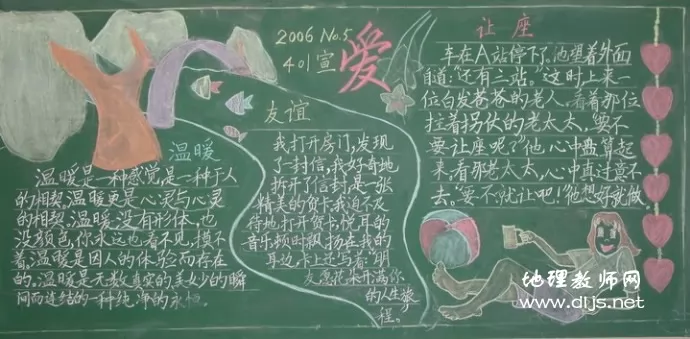 2006 No.5
401宣
爱
温暖
温暖是一种感觉,是一种于人
的相契,温暖更是心灵与心灵
的相契,温暖没有形体,也
没颜色,你永远也看不见,摸不
着,温暖是因人的体验而存在
的,温暖是无数真实的美妙的瞬
间而连结的一种纯净的永恒。
友谊
我打开房门,发现
了一封信,我好奇地
拆开了信封,是一张
精美的贺卡,我迫不及
待地打开贺卡,悦耳的
音乐顿时飘扬在我的
耳边,卡上还写着:"朋
友愿花朵开满你
的人生旅
程。
让座
车在A站停下了。他想着外面
自道:"还有三站。"这时上来一
位白发苍苍的老人,看着那位
拄着拐杖的老太太,"要不
要让座呢?"他,心中盘算起
来,看那老太太,心中真过意不
去。"要不就让吧!"他想好就做。
地理教师网
www.dljs.net